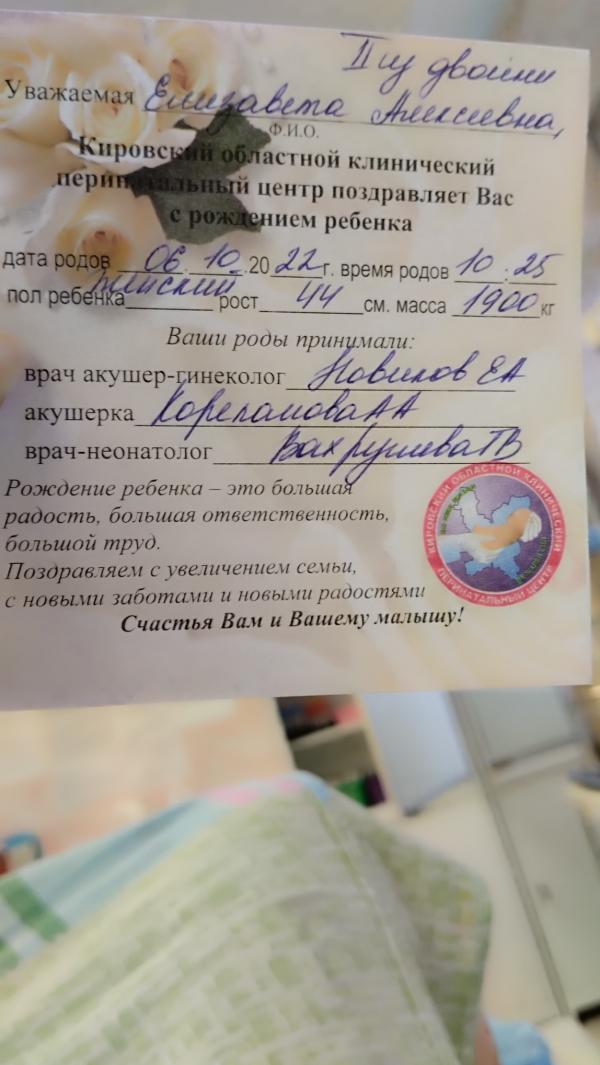 II из двойни
Уважаемая Елизавета Алексеевна,
Ф.И.О.
Кировский областной клинический
перинатальный центр поздравляет Вас
с рождением ребенка
дата родов 06.10.2022г. время родов 10:25
пол ребенка женский рост 44 см. масса 1900 кг
Ваши роды принимали:
врач акушер-гинеколог Новиков ЕА
акушерка АА
врач-неонатолог Вахрушева ТВ
Рождение ребенка – это большая
радость, большая ответственность,
большой труд.
Поздравляем с увеличением семьи,
с новыми заботами и новыми радостями
Счастья Вам и Вашему малышу!
КИРОВСКИЙ ОБЛАСТНОЙ КЛИНИЧЕСКИЙ
ПЕРИНАТАЛЬНЫЙ ЦЕНТР